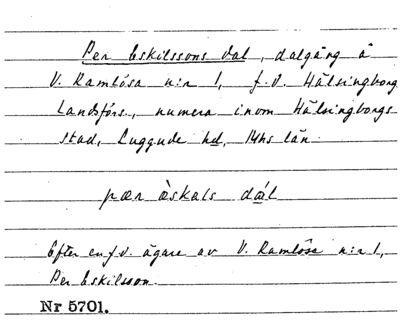 Per Eskilssons dal, dalgång å
V. Ramlösa n:r 1, f.d. Hälsingborg
Landsförs., numera inom Hälsingborgs
stad, Luggude hd, Mhs län.
pær èskals dál
Efter en f.d. ägare av V. Ramlösa n:r 1,
Per Eskilsson.
Nr 5701.